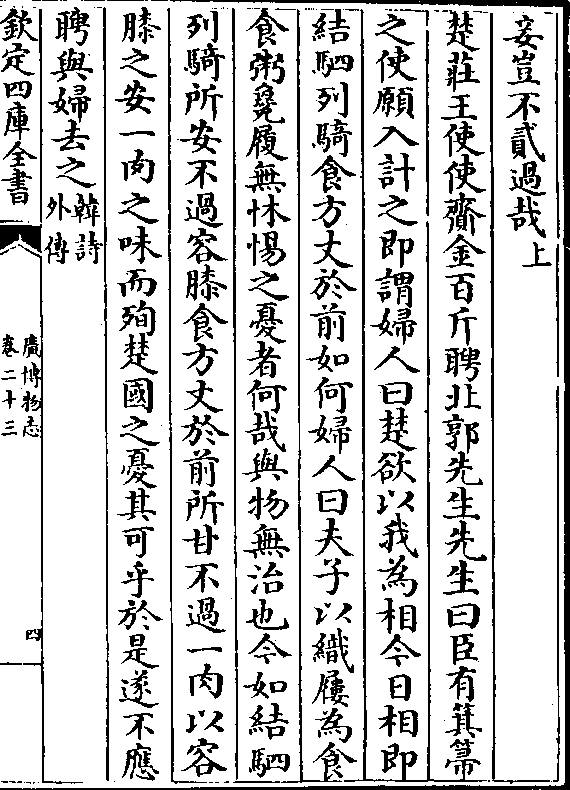 妾豈不貳過哉上
楚莊王使使齎金百斤聘北郭先生先生曰臣有箕箒
之使願入計之即謂婦人曰楚欲以我為相今日相即
結駟列騎食方丈於前如何婦人曰夫子以織屨為食
食粥毚履無怵惕之憂者何哉與物無治也今如結駟
列騎所安不過容膝食方丈於前所甘不過一肉以容
膝之安一肉之味而殉楚國之憂其可乎於是遂不應
聘與婦去之韓詩
外傳
欽定四庫全書
廣博物志
卷二十三
四